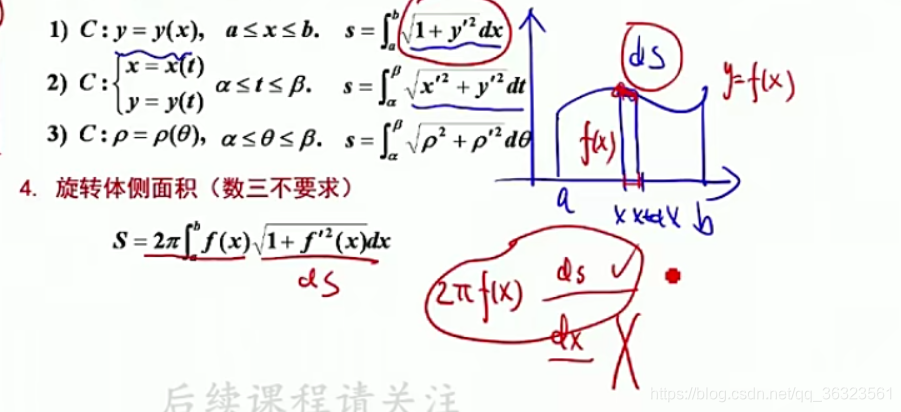 1) C: y = y(x), a ≤ x ≤ b. s = ∫ₐᵇ √(1 + y'²) dx
2) C: { x = x(t) y = y(t) α ≤ t ≤ β. s = ∫_α^β √(x'² + y'²) dt
3) C: ρ = ρ(θ), α ≤ θ ≤ β. s = ∫_α^β √(ρ² + ρ'²) dθ
ds
y=f(x)
f(x)
a x x+dx b
4. 旋转体侧面积（数三不要求）
S = 2π∫ₐᵇ f(x)√(1 + f'²(x)) dx
ds
2π f(x) ds ✓
dx X
后续课程请关注
https://blog.csdn.net/qq_36323561